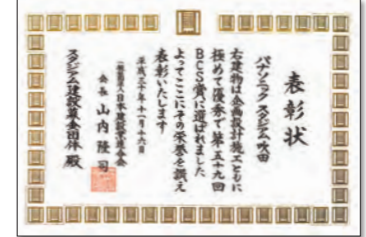 表彰状
パナソニック スタジアム吹田
右建物は企画設計施工ともに
極めて優秀で第五十九回
BCS賞に選ばれました
よってここにその栄誉を讃え
表彰いたします
平成三十年十一月十六日
一般社団法人日本建設業連合会
会長 山内隆司
スタジアム建設募金団体 殿